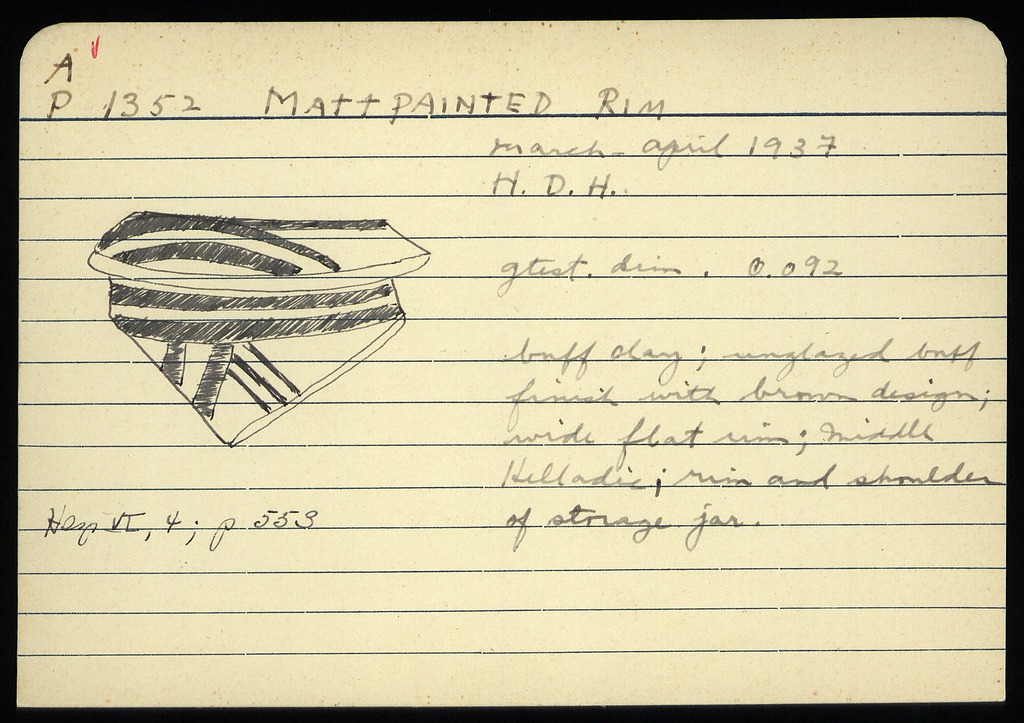 A
P 1352 MATT PAINTED RIM
March - April 1937
H. D. H.
gtest. dim. 0.092
buff clay; unglazed buff
finish with brown design;
wide flat rim; Middle
Helladic; rim and shoulder
of storage jar.
Hesp VI, 4; p 553